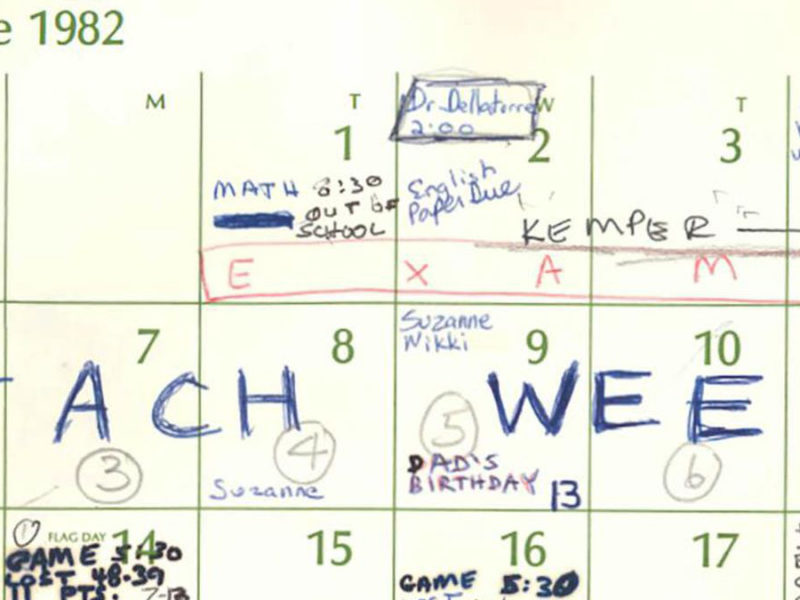 e 1982
M T W T
Dr. Dellatorre
2:00
1 2 3
MATH 8:30
OUT OF
SCHOOL
English
Paper Due
KEMPER
E X A M
7 8 9 10
Suzanne
Nikki
ACH WEE
3 4 5 6
Suzanne
DAD'S
BIRTHDAY 13
FLAG DAY 14 15 16 17
GAME 5:30
LOST 48-39
11 PTS.
GAME 5:30